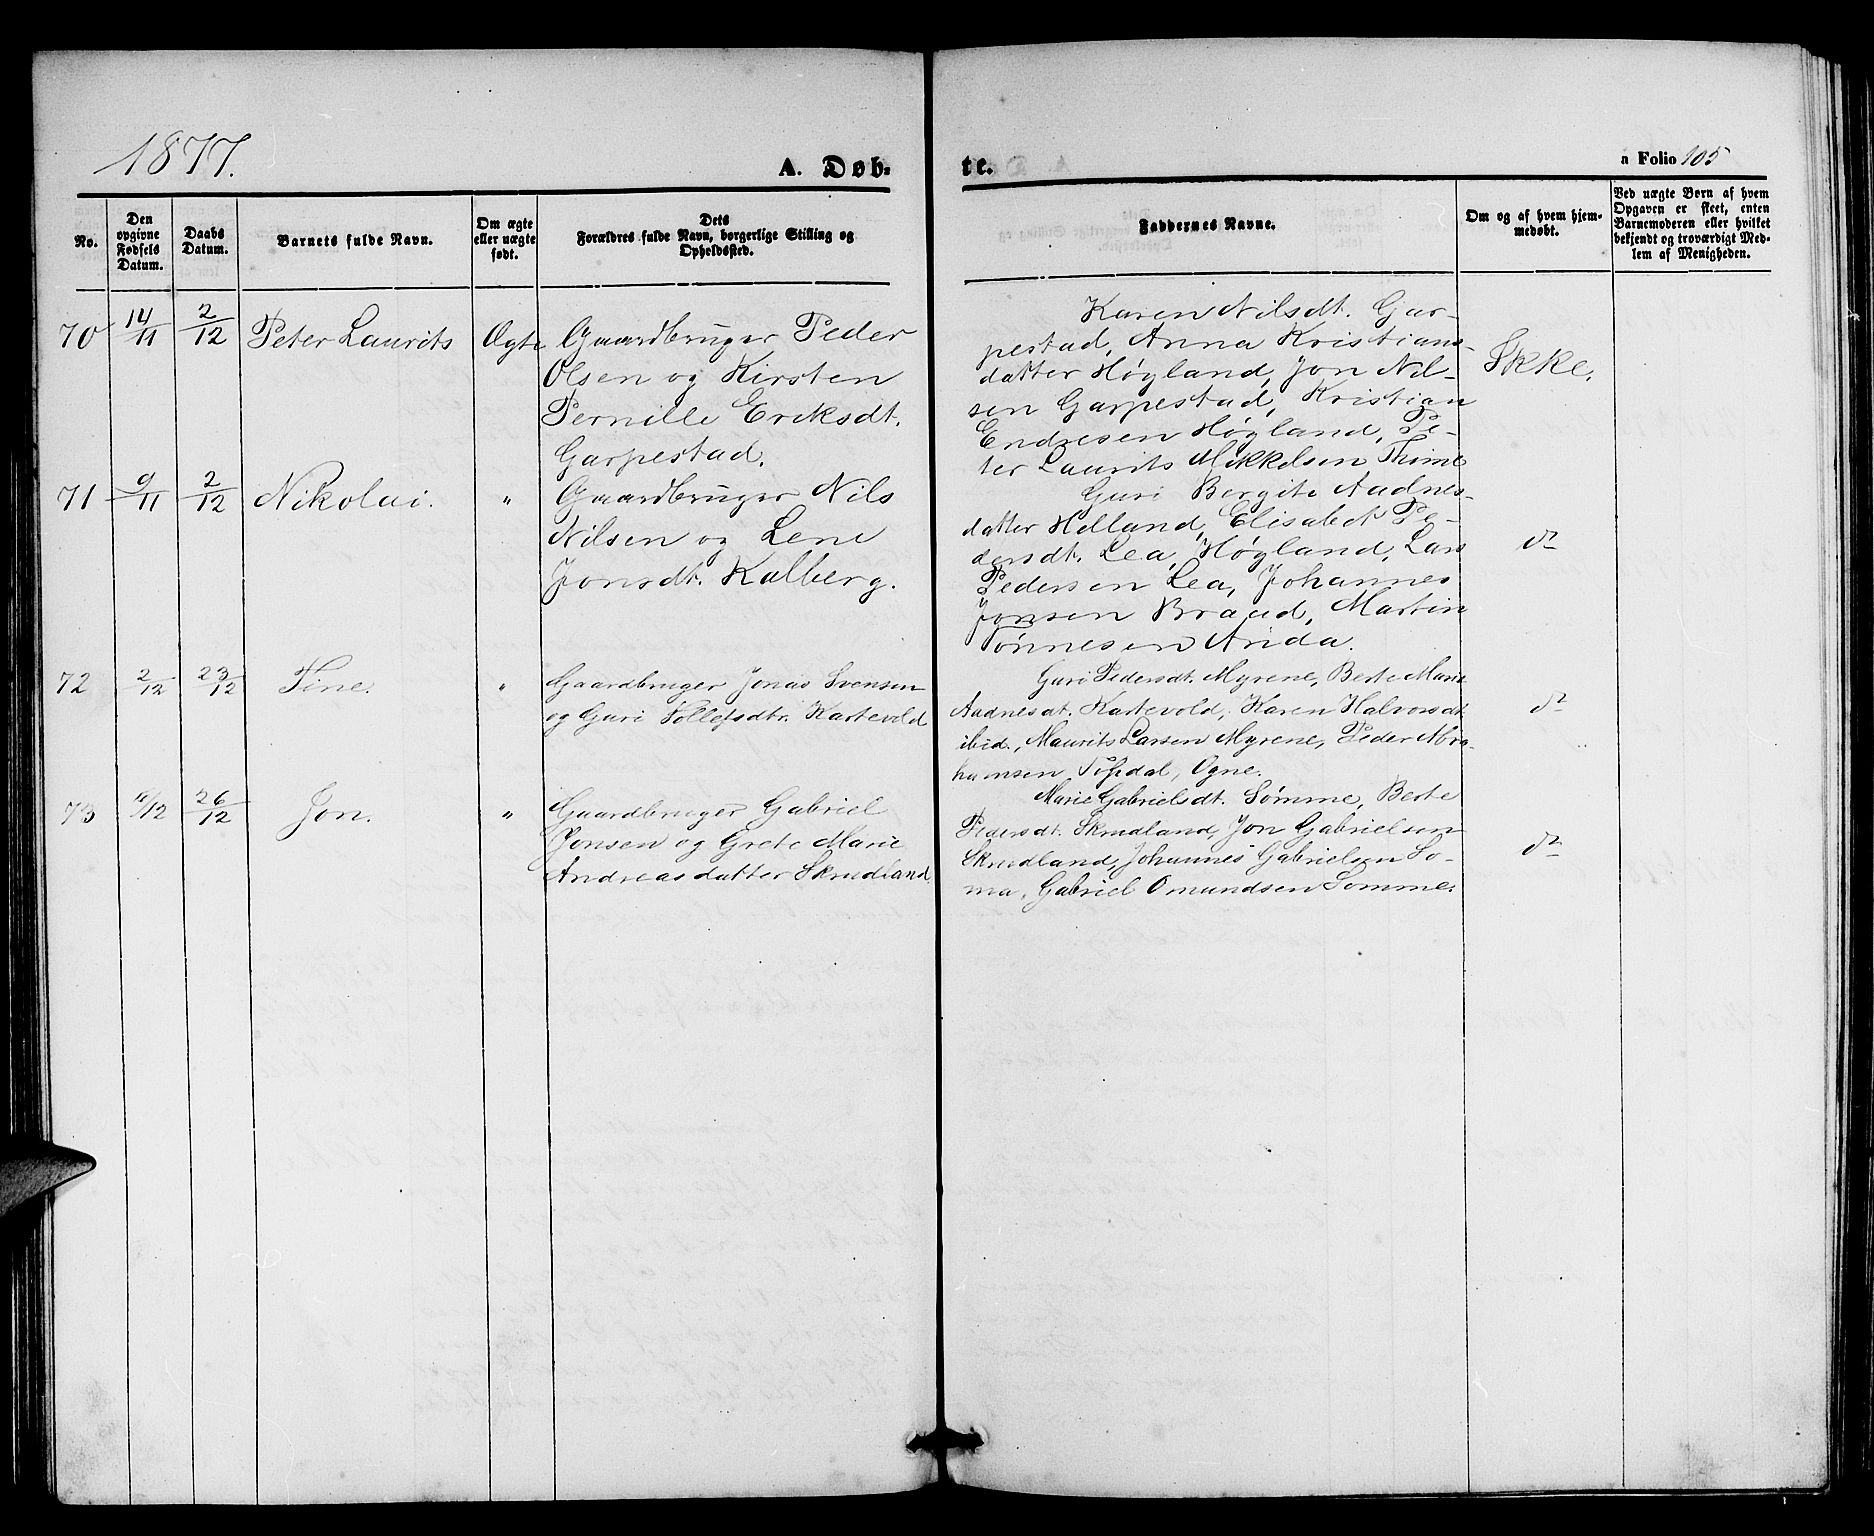 1877.
A. Døb-
te.
a Folio 105
No.
Den opgivne Fødsels Datum.
Daabs Datum.
Barnets fulde Navn.
Om ægte eller uægte født.
Dets Forældres fulde Navn, borgerlige Stilling og Opholdssted.
Faddernes Navne.
Om og af hvem hjemmedøbt.
Ved uægte Børn af hvem Opgaven er skeet, enten Barnemoderen eller hvilket bekjendt og troværdigt Medlem af Menigheden.
70 14/11 2/12 Peter Laurits Ægte Gaardbruger Peder
Olsen og Kirsten
Pernille Eriksdt.
Garpestad.
Karen Nilsdt. Gar-
pestad, Anna Kristians-
datter Høyland, Jon Nil-
sen Garpestad, Kristian
Endresen Høgland, Pe-
ter Laurits Mikkelsen Thime
Ikke.
71 9/11 2/12 Nikolai. " Gaardbruger Nils
Nilsen og Lene
Jonsdt. Kalberg.
Guri Bergite Aadnes-
datter Helland, Elisabet Pe-
dersdt. Lea, Høgland, Lars
Pedersen Lea, Johannes
Jonsen Braud, Martin
Tønnesen Arida.
do
72 2/12 23/12 Tine. " Gaardbruger Jonas Svensen
og Guri Tollefsdtr. Kartevold
Guri Pedersdt. Myrene, Berte Marie
Aadnesdt. Kartevold, Karen Halvorsdt.
ibid., Maurits Larsen Myrene, Peder Abra-
hamsen Tøsdal, Ogne.
do
73 /12 26/12 Jon. " Gaardbruger Gabriel
Jonsen og Grete Marie
Andreasdatter Skrudland
Marie Gabrielsdt. Sømme, Berte
Pedersdt. Skrudland, Jon Gabrielsen
Skrudland, Johannes Gabrielsen So-
ma, Gabriel Omundsen Somme.
do